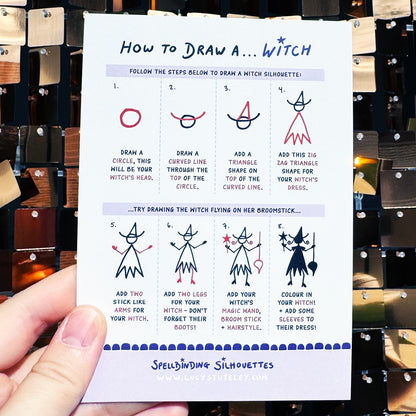 HOW TO DRAW A... WITCH
FOLLOW THE STEPS BELOW TO DRAW A WITCH SILHOUETTE:
1. 2. 3. 4.
DRAW A
CIRCLE, THIS
WILL BE YOUR
WITCH'S HEAD.
DRAW A
CURVED LINE
THROUGH THE
TOP OF THE
CIRCLE.
ADD A
TRIANGLE
SHAPE ON
TOP OF THE
CURVED LINE.
ADD THIS ZIG
ZAG TRIANGLE
SHAPE FOR
YOUR WITCH'S
DRESS.
...TRY DRAWING THE WITCH FLYING ON HER BROOMSTICK...
5. 6. 7. 8.
ADD TWO
STICK LIKE
ARMS FOR
YOUR WITCH.
ADD TWO LEGS
FOR YOUR
WITCH - DON'T
FORGET THEIR
BOOTS!
ADD YOUR
WITCH'S
MAGIC WAND,
BROOM STICK
+ HAIRSTYLE.
COLOUR IN
YOUR WITCH!
+ ADD SOME
SLEEVES TO
THEIR DRESS!
SPELLBINDING SILHOUETTES
WWW.LUCYSTUTELEY.COM